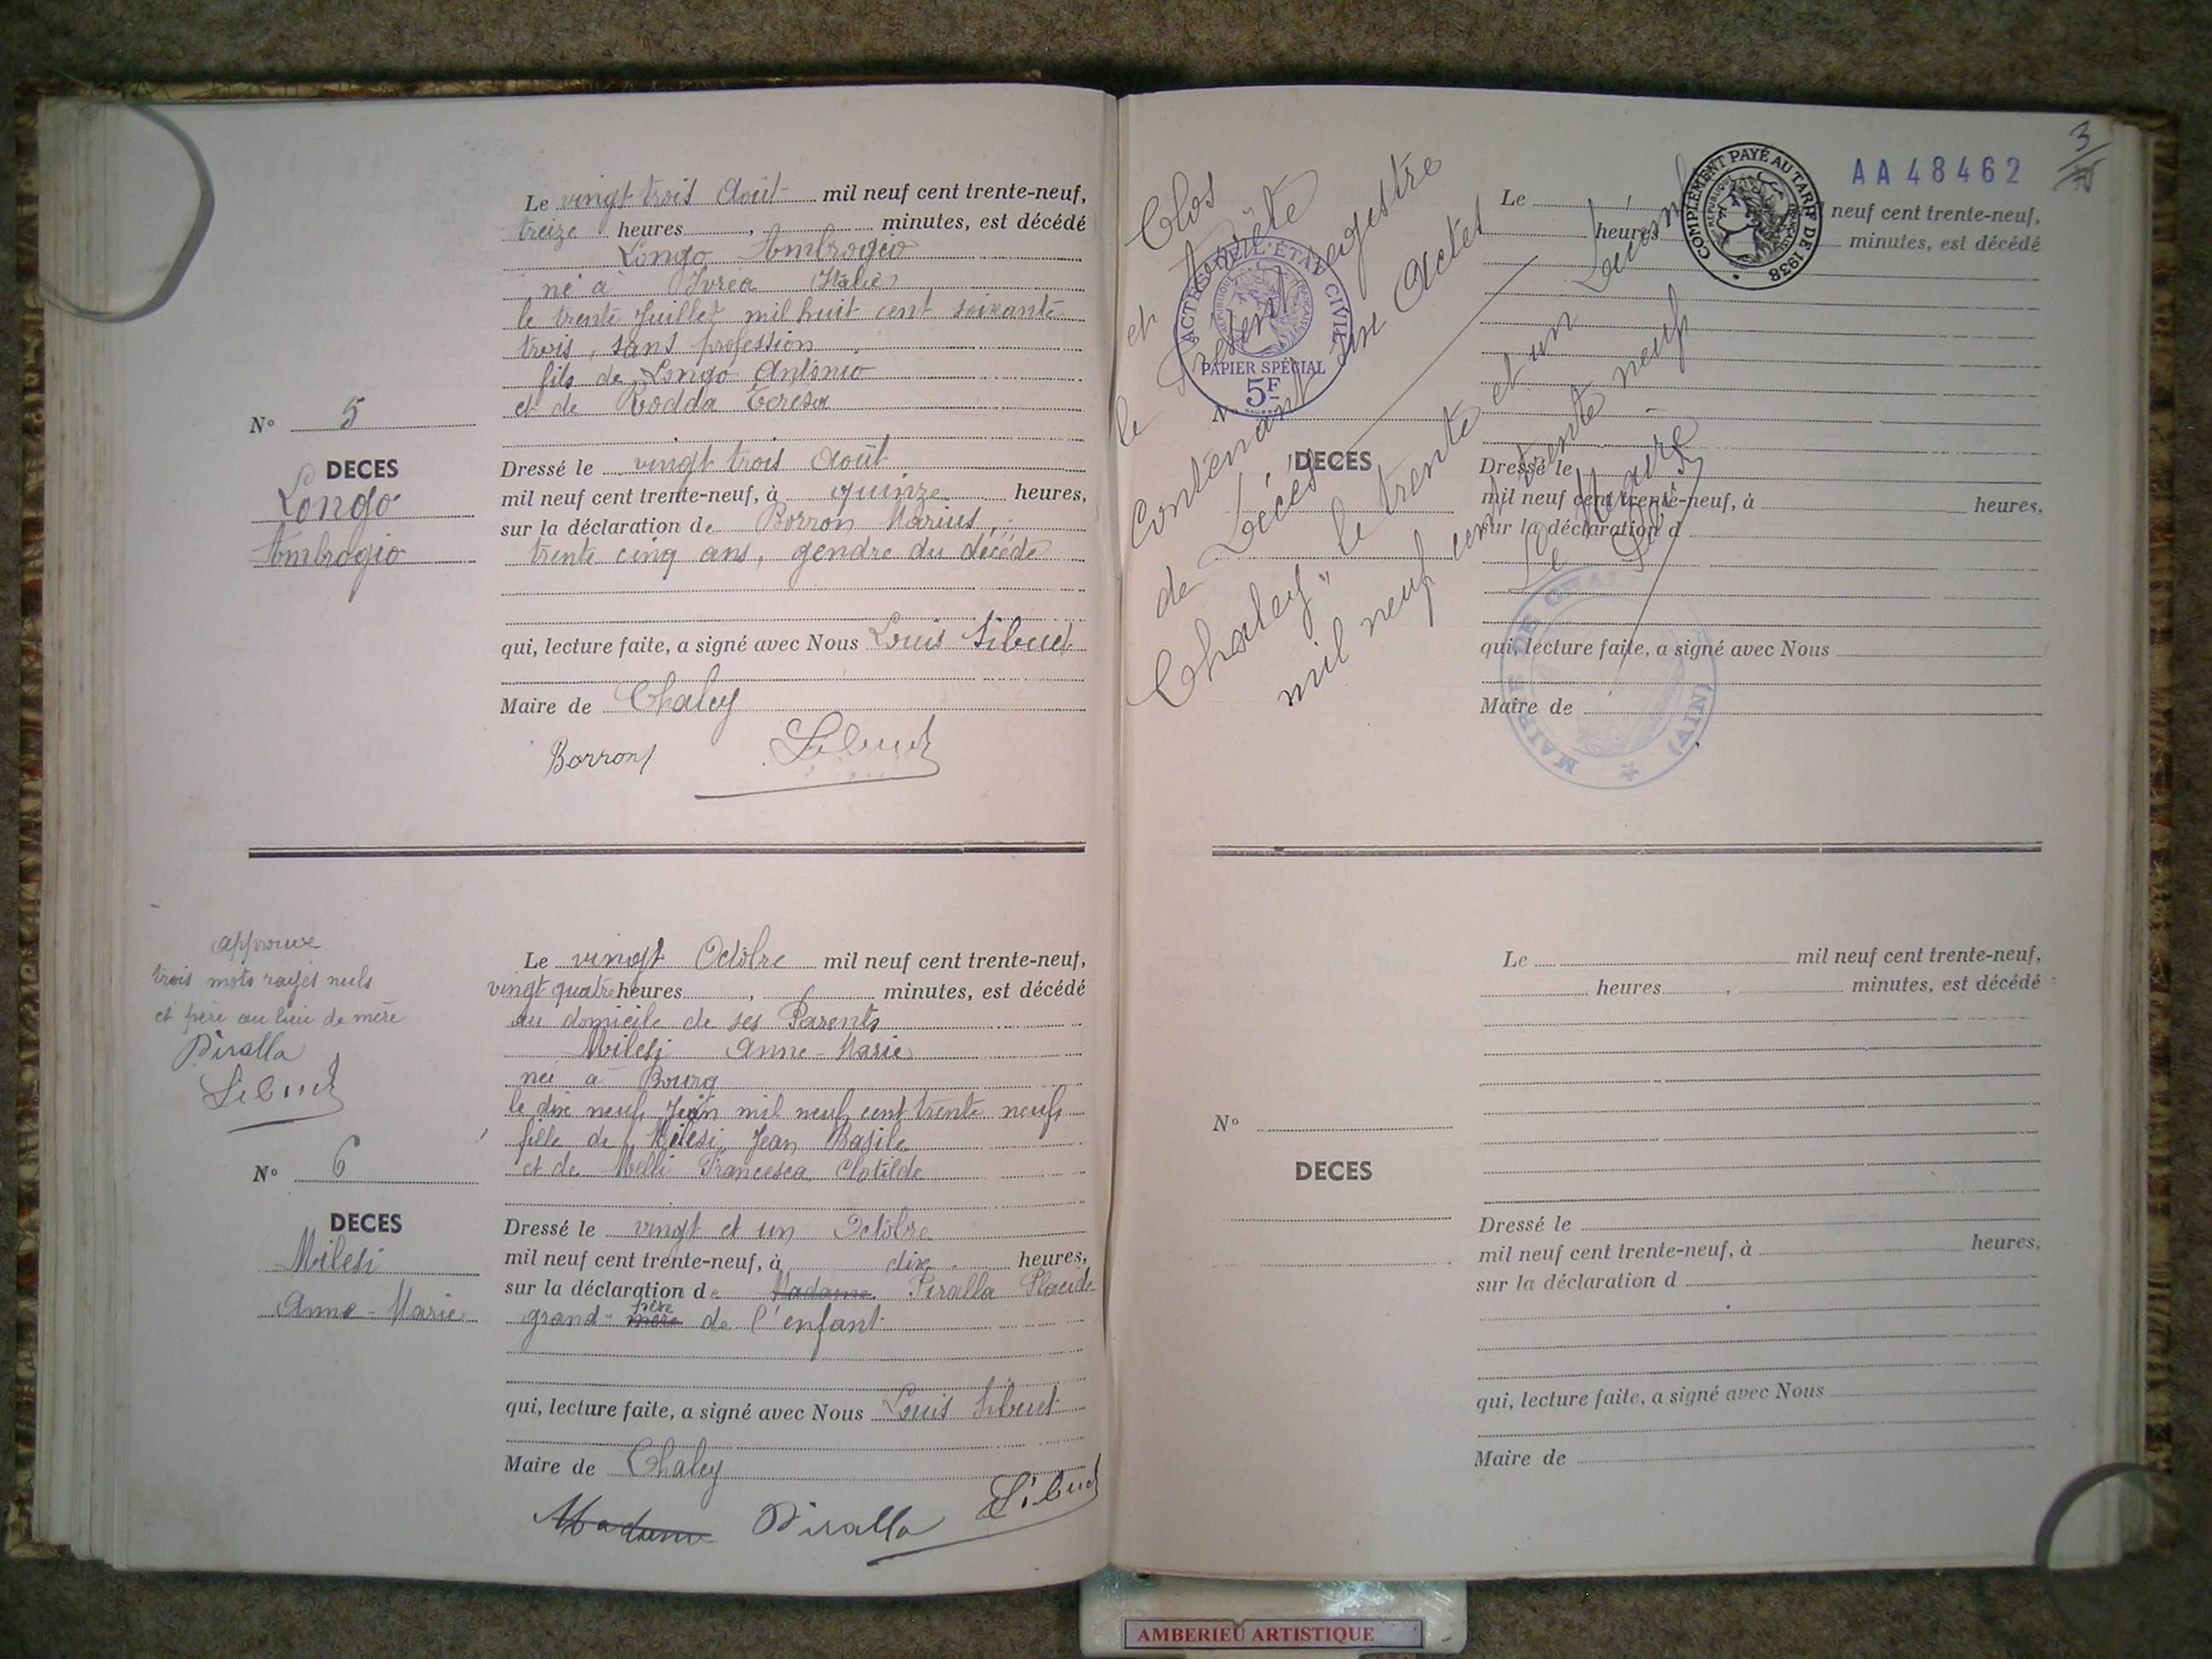 Le vingt trois Août mil neuf cent trente-neuf,
treize heures, minutes, est décédé
Longo Ambrogio
né à Ivrea (Italie)
le trente Juillet mil huit cent soixante
trois, sans profession
fils de Longo Antonio
et de Rodda Teresa
N° 5
DECES
Longo
Ambrogio
Dressé le vingt trois Août
mil neuf cent trente-neuf, à quinze heures,
sur la déclaration de Borron Marius,
trente cinq ans, gendre du décédé
qui, lecture faite, a signé avec Nous Louis Sibuet
Maire de Chaley
Borron Sibuet
approuve
trois mots rayés nuls
et père au lieu de mère
Piralla
Sibuet
N° 6
DECES
Milesi
Anne-Marie
Le vingt Octobre mil neuf cent trente-neuf,
vingt quatre heures, minutes, est décédé
au domicile de ses Parents
Milesi Anne-Marie
née à Bourg
le dix neuf Juin mil neuf cent trente neuf
fille de Milesi Jean Basile
et de Melli Francesca Clotilde
Dressé le vingt et un Octobre
mil neuf cent trente-neuf, à dix heures,
sur la déclaration de Madame Piralla Placide
père
grand-mère de l'enfant
qui, lecture faite, a signé avec Nous Louis Sibuet
Maire de Chaley
Madame Piralla Sibuet
3
AA48462
COMPLÉMENT PAYÉ AU TARIF DE 1938
Clos
et arrêté
le présent registre
contenant six Actes
de Décès
Chaley" le trente et un Décembre
mil neuf cent trente neuf
Le Maire
Sibuet
ACTES DE L'ÉTAT CIVIL
RÉPUBLIQUE FRANÇAISE
PAPIER SPÉCIAL
5F
MAIRIE DE CHALEY (AIN)
Le neuf cent trente-neuf,
heures minutes, est décédé
N°
DECES
Dressé le
mil neuf cent trente-neuf, à heures,
sur la déclaration d
qui, lecture faite, a signé avec Nous
Maire de
Le mil neuf cent trente-neuf,
heures, minutes, est décédé
N°
DECES
Dressé le
mil neuf cent trente-neuf, à heures,
sur la déclaration d
qui, lecture faite, a signé avec Nous
Maire de
AMBERIEU ARTISTIQUE